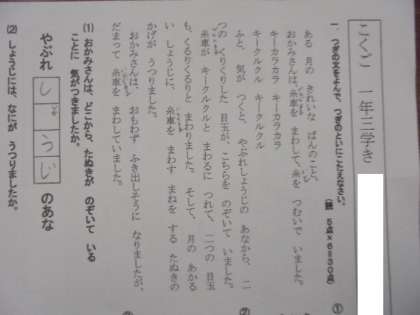 こくご 一年三学き
一、つぎの文をよんで、つぎのといにこたえなさい。
(読 5点×6=30点)
ある 月の きれいな ばんのこと、
おかみさんは、糸車を まわして、糸を つむいで いました。
キーカラカラ キーカラカラ
キークルクル キークルクル
ふと、気が つくと、やぶれしょうじの あなから、二
つの くりくりした 目玉が、こちらを のぞいて いました。
糸車が キークルクルと まわるに つれて、二つの 目玉
も、くるりくるりと まわりました。そして、月の あかる
い しょうじに、糸車を まわす まねを する たぬきの
かげが うつりました。
おかみさんは、おもわず ふき出しそうに なりましたが、
だまって 糸車を まわしていました。
(1) おかみさんは、どこから、たぬきが のぞいて いる
ことに 気がつきましたか。
やぶれ しょうじ のあな
(2) しょうじには、なにが うつりましたか。
①
②